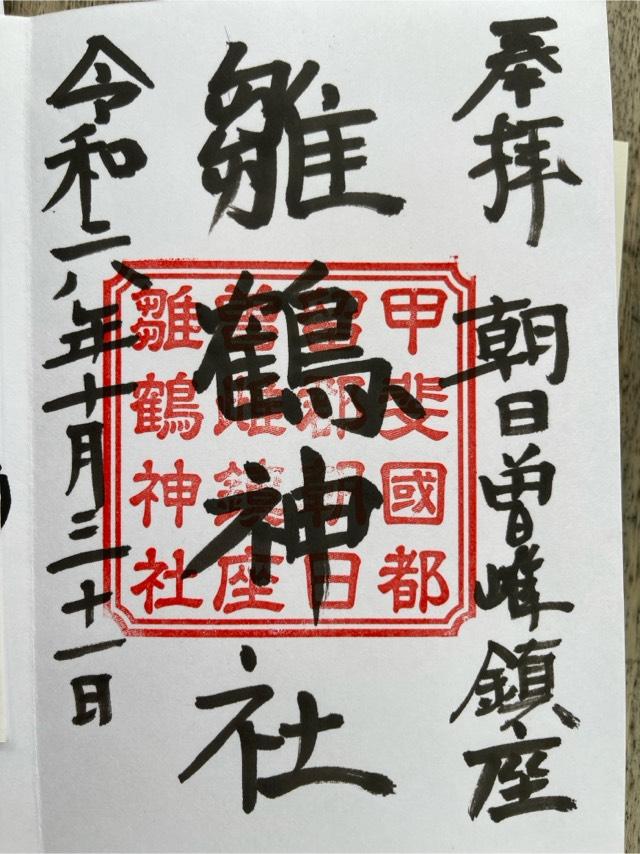 奉拝 朝日曽雌鎮座
雛鶴神社
令和六年十月三十一日
甲斐國都
留郡朝日
曽雌鎮座
雛鶴神社